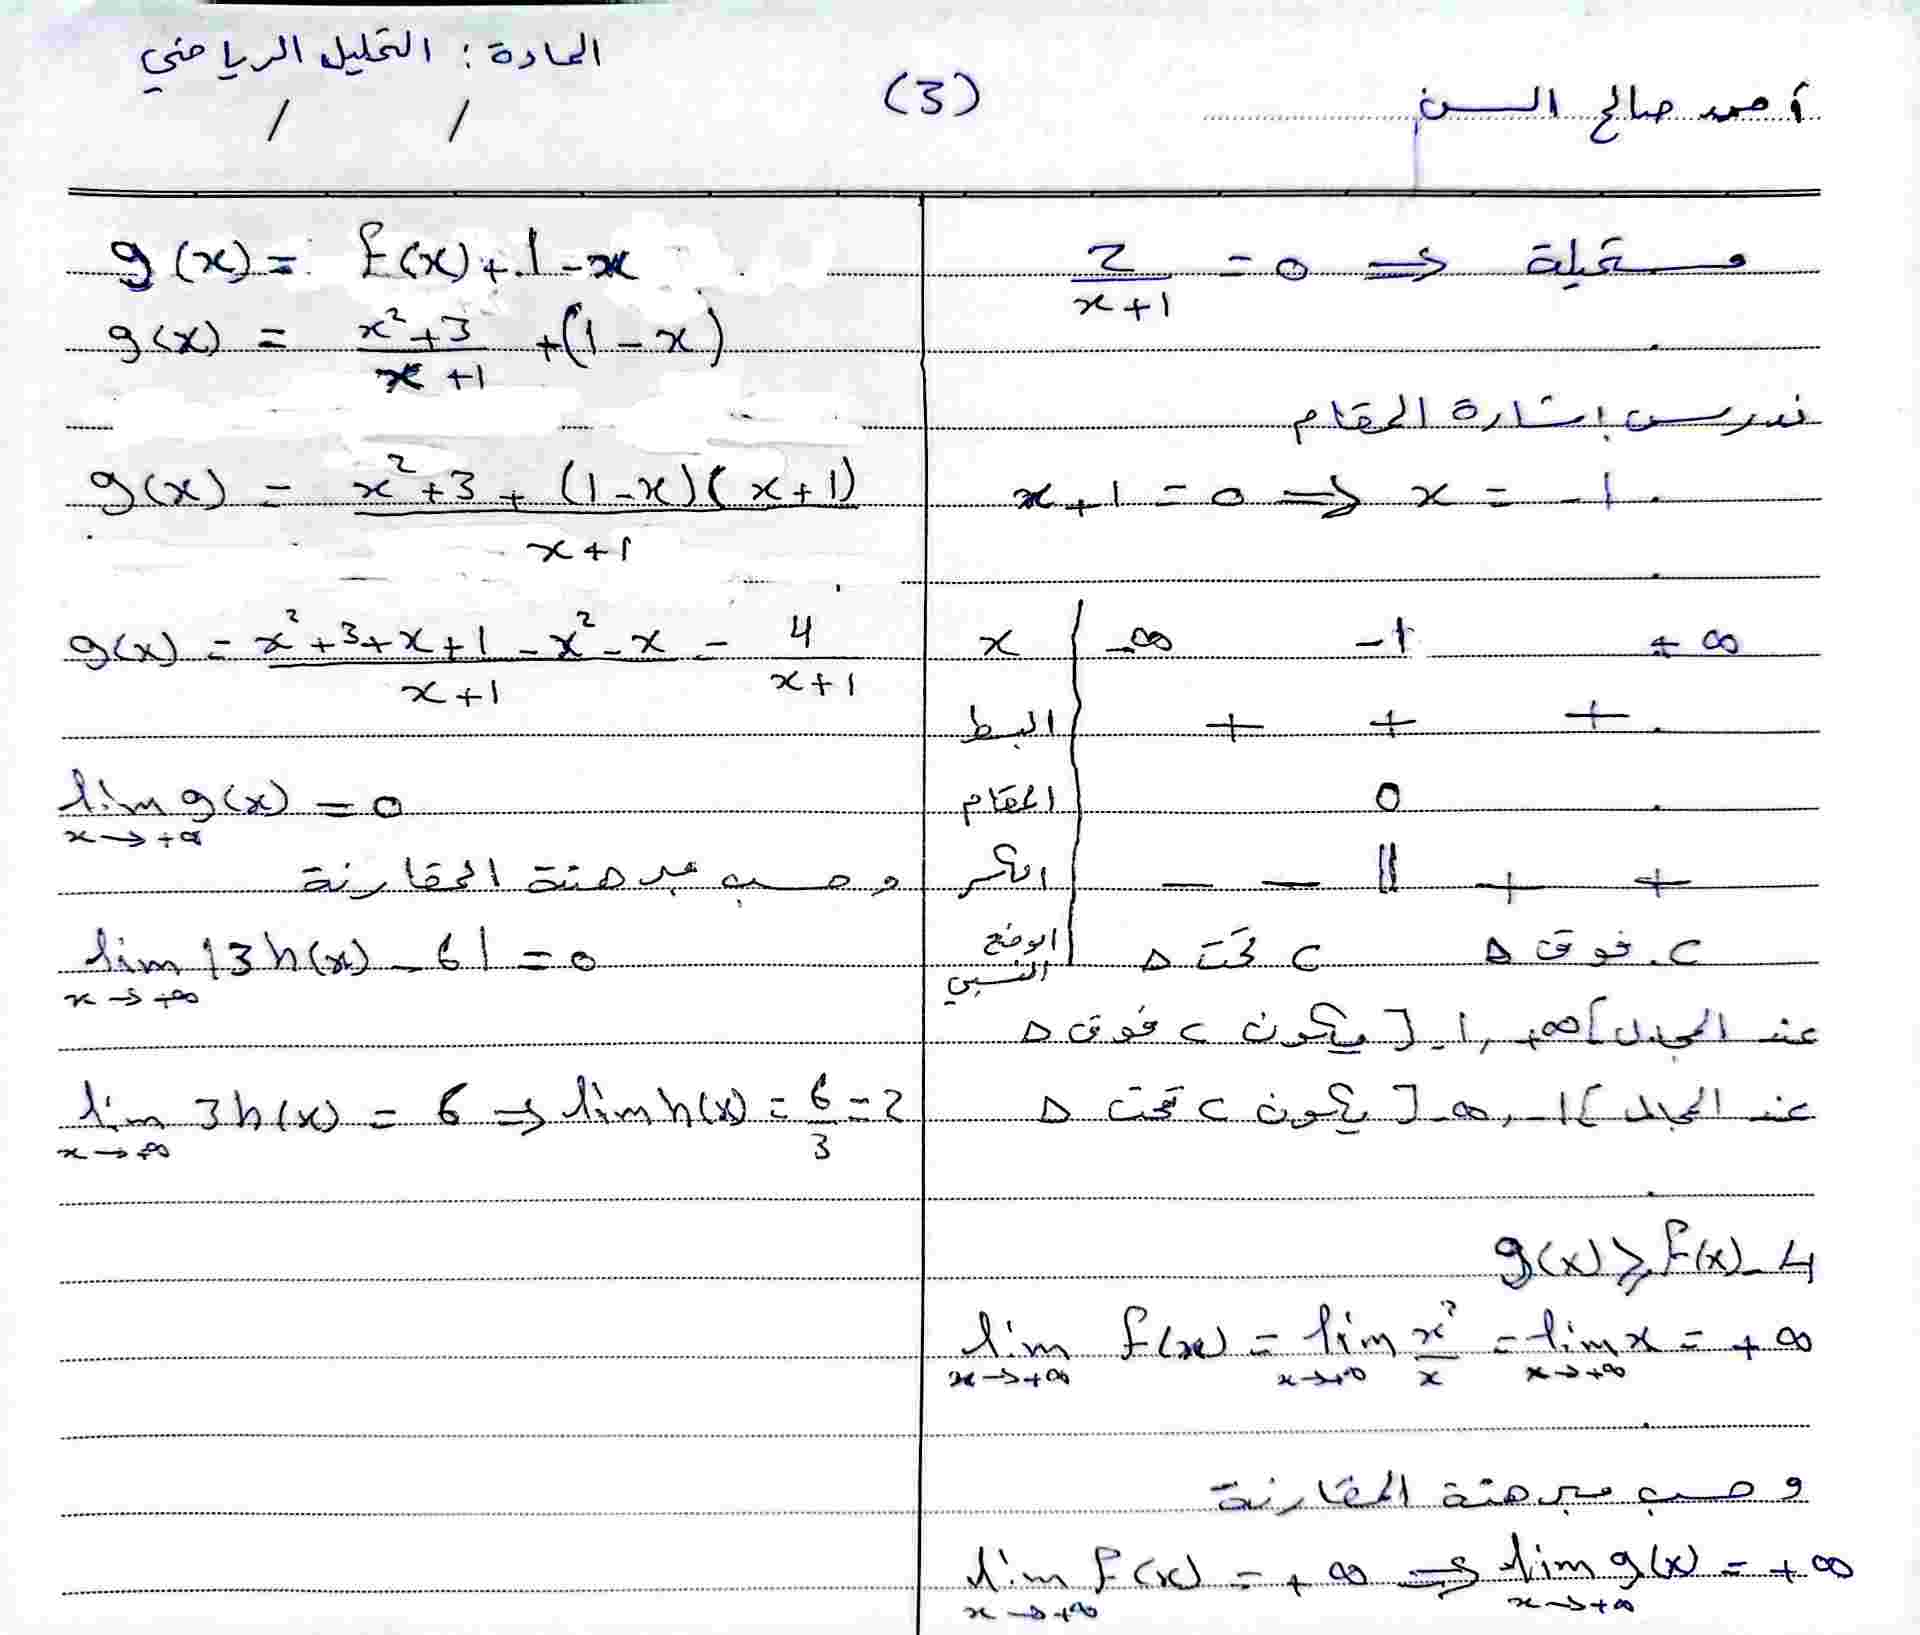 أحمد صالح السن
(3)
المادة: التحليل الرياضي
/ /
2/(x+1) = 0 => مستحيلة
ندرس إشارة المقام
x+1 = 0 => x = -1
x | -∞ -1 +∞
البسط | + + +
المقام | 0
الكسر | - - || + +
الوضع النسبي | C تحت Δ C فوق Δ
عند المجال ]-1, +∞[ يكون C فوق Δ
عند المجال ]-∞, -1[ يكون C تحت Δ
g(x) ≥ f(x) - 4
lim x→+∞ f(x) = lim x→+∞ x²/x = lim x→+∞ x = +∞
وحسب مبرهنة المقارنة
lim x→+∞ f(x) = +∞ => lim x→+∞ g(x) = +∞
g(x) = f(x) + 1 - x
g(x) = (x²+3)/(x+1) + (1-x)
g(x) = (x²+3+(1-x)(x+1))/(x+1)
g(x) = (x²+3+x+1-x²-x)/(x+1) = 4/(x+1)
lim x→+∞ g(x) = 0
وحسب مبرهنة المقارنة
lim x→+∞ |3h(x) - 6| = 0
lim x→+∞ 3h(x) = 6 => lim h(x) = 6/3 = 2